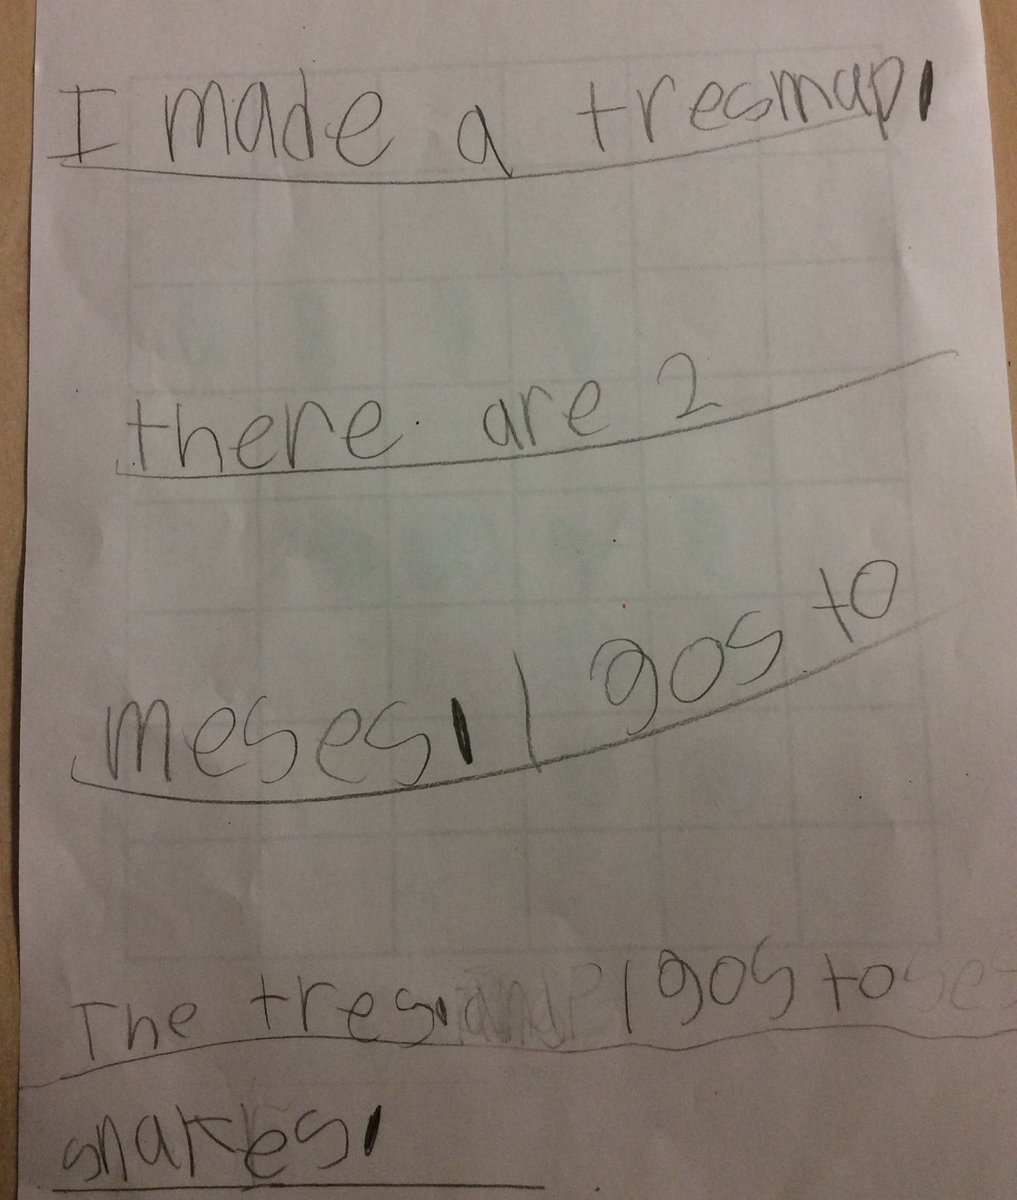 I made a tresmap.
there are 2
meses. 1 gos to
The tres. 1 gos to
snakes.